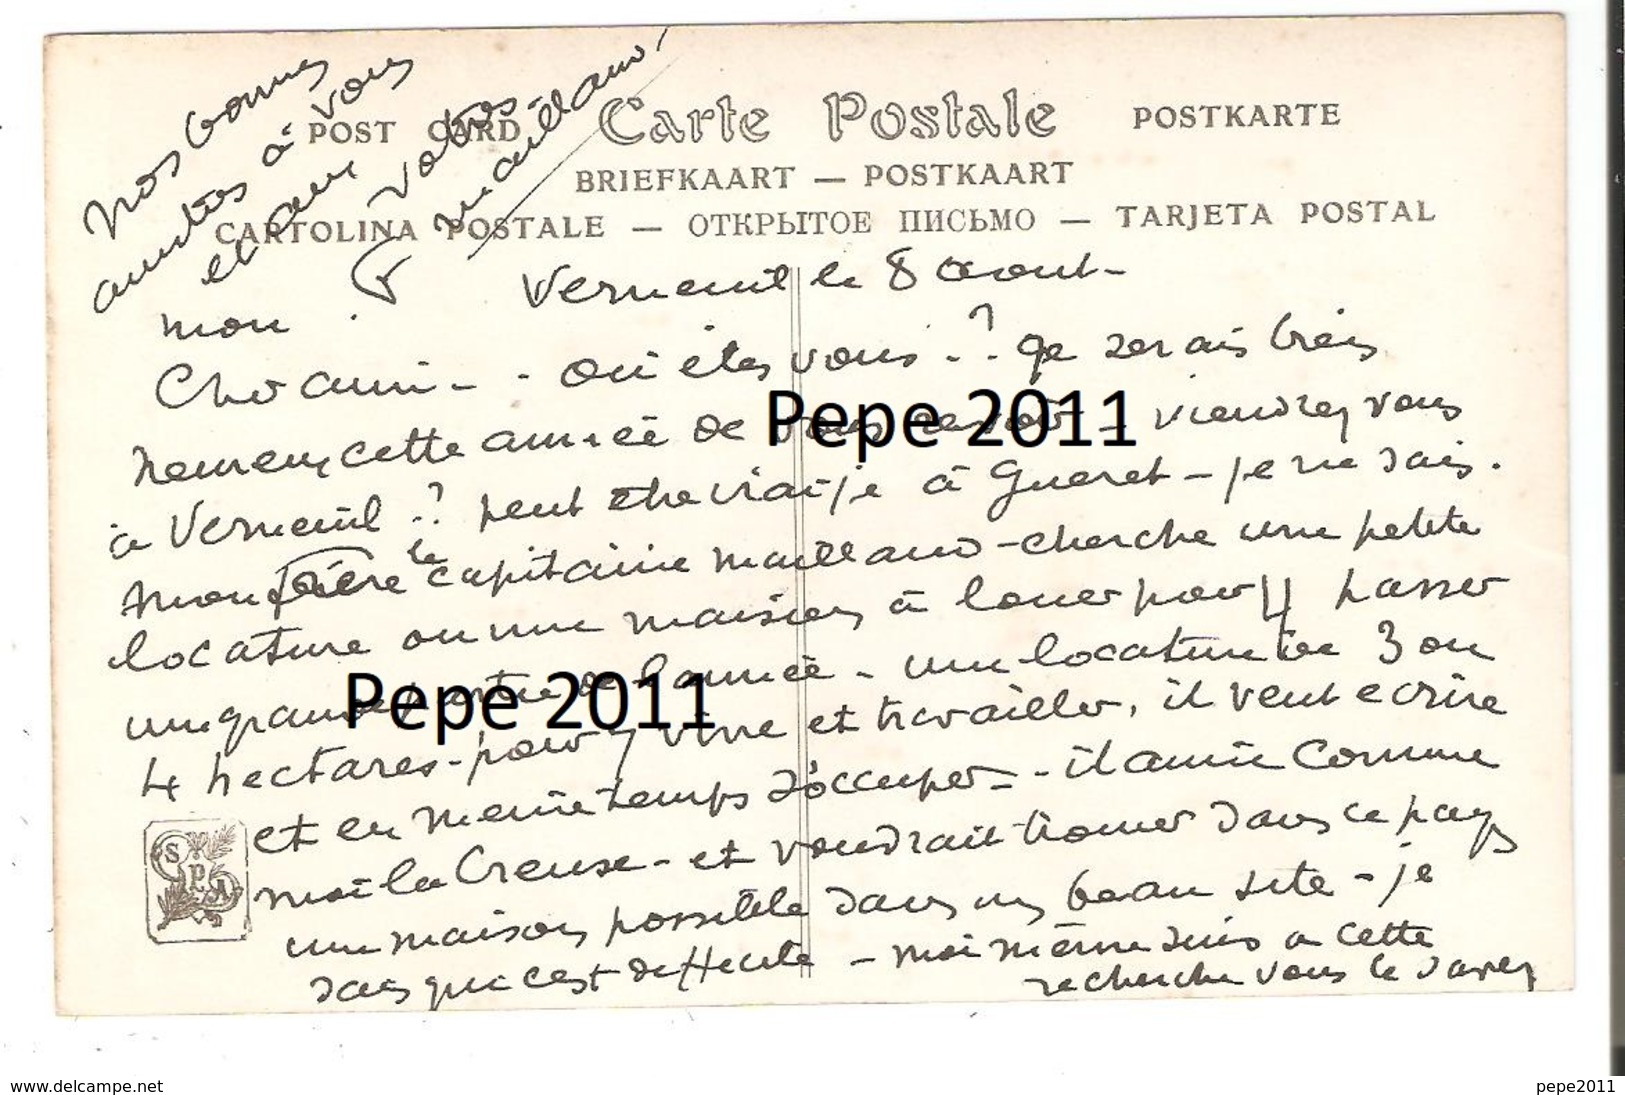 Nos bonnes
amitiés à vous
et aux votres
G Maillaud
POST CARD Carte Postale POSTKARTE
BRIEFKAART — POSTKAART
CARTOLINA POSTALE — ОТКРЫТОЕ ПИСЬМО — TARJETA POSTAL
Verneuil le 8 aout -
mon
Cher ami - - où êtes vous ? ? je serais bien
heureux cette année de vous revoir - viendrez vous
à Verneuil ? peut être irai-je à Gueret - je ne sais.
mon frère le capitaine Maillaud - cherche une petite
locature ou une maison à louer pour y passer
une grande partie de l'année - une locature de 3 ou
4 hectares - pour y vivre et travailler, il veut ecrire
et en meme temps s'occuper - il aime comme
moi la Creuse - et voudrait trouver dans ce pays
une maison possible dans un beau site - je
sais que c'est difficile - moi même suis a cette
recherche vous le savez
SPA
Pepe 2011
Pepe 2011
www.delcampe.net
pepe2011